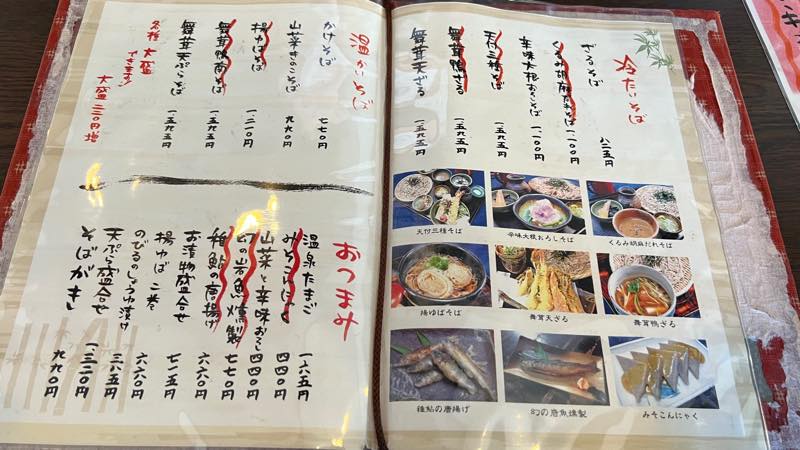 冷たいそば
ざるそば 八二五円
くるみ胡麻だれそば 一一〇〇円
辛味大根おろしそば 一一〇〇円
天付三種そば 一五九五円
舞茸鴨ざる 一五九五円
舞茸天ざる 一五九五円
天付三種そば
辛味大根おろしそば
くるみ胡麻だれそば
揚ゆばそば
舞茸天ざる
舞茸鴨ざる
稚鮎の唐揚げ
幻の岩魚燻製
みそこんにゃく
温かいそば
かけそば 七七〇円
山菜きのこそば 九九〇円
揚ゆばそば 一二一〇円
舞茸鴨南そば 一五九五円
舞茸天ぷらそば 一五九五円
各種大盛
できます!
大盛二二〇円増
おつまみ
温泉たまご 一六五円
みそこんにゃく 四四〇円
山菜と辛味おろし 四四〇円
幻の岩魚燻製 七七〇円
稚鮎の唐揚げ 六六〇円
お漬物盛合せ 七一五円
揚ゆば 二巻 六六〇円
のびるのしょうゆ漬け 三八五円
天ぷら盛合せ 一三二〇円
そばがき 九九〇円